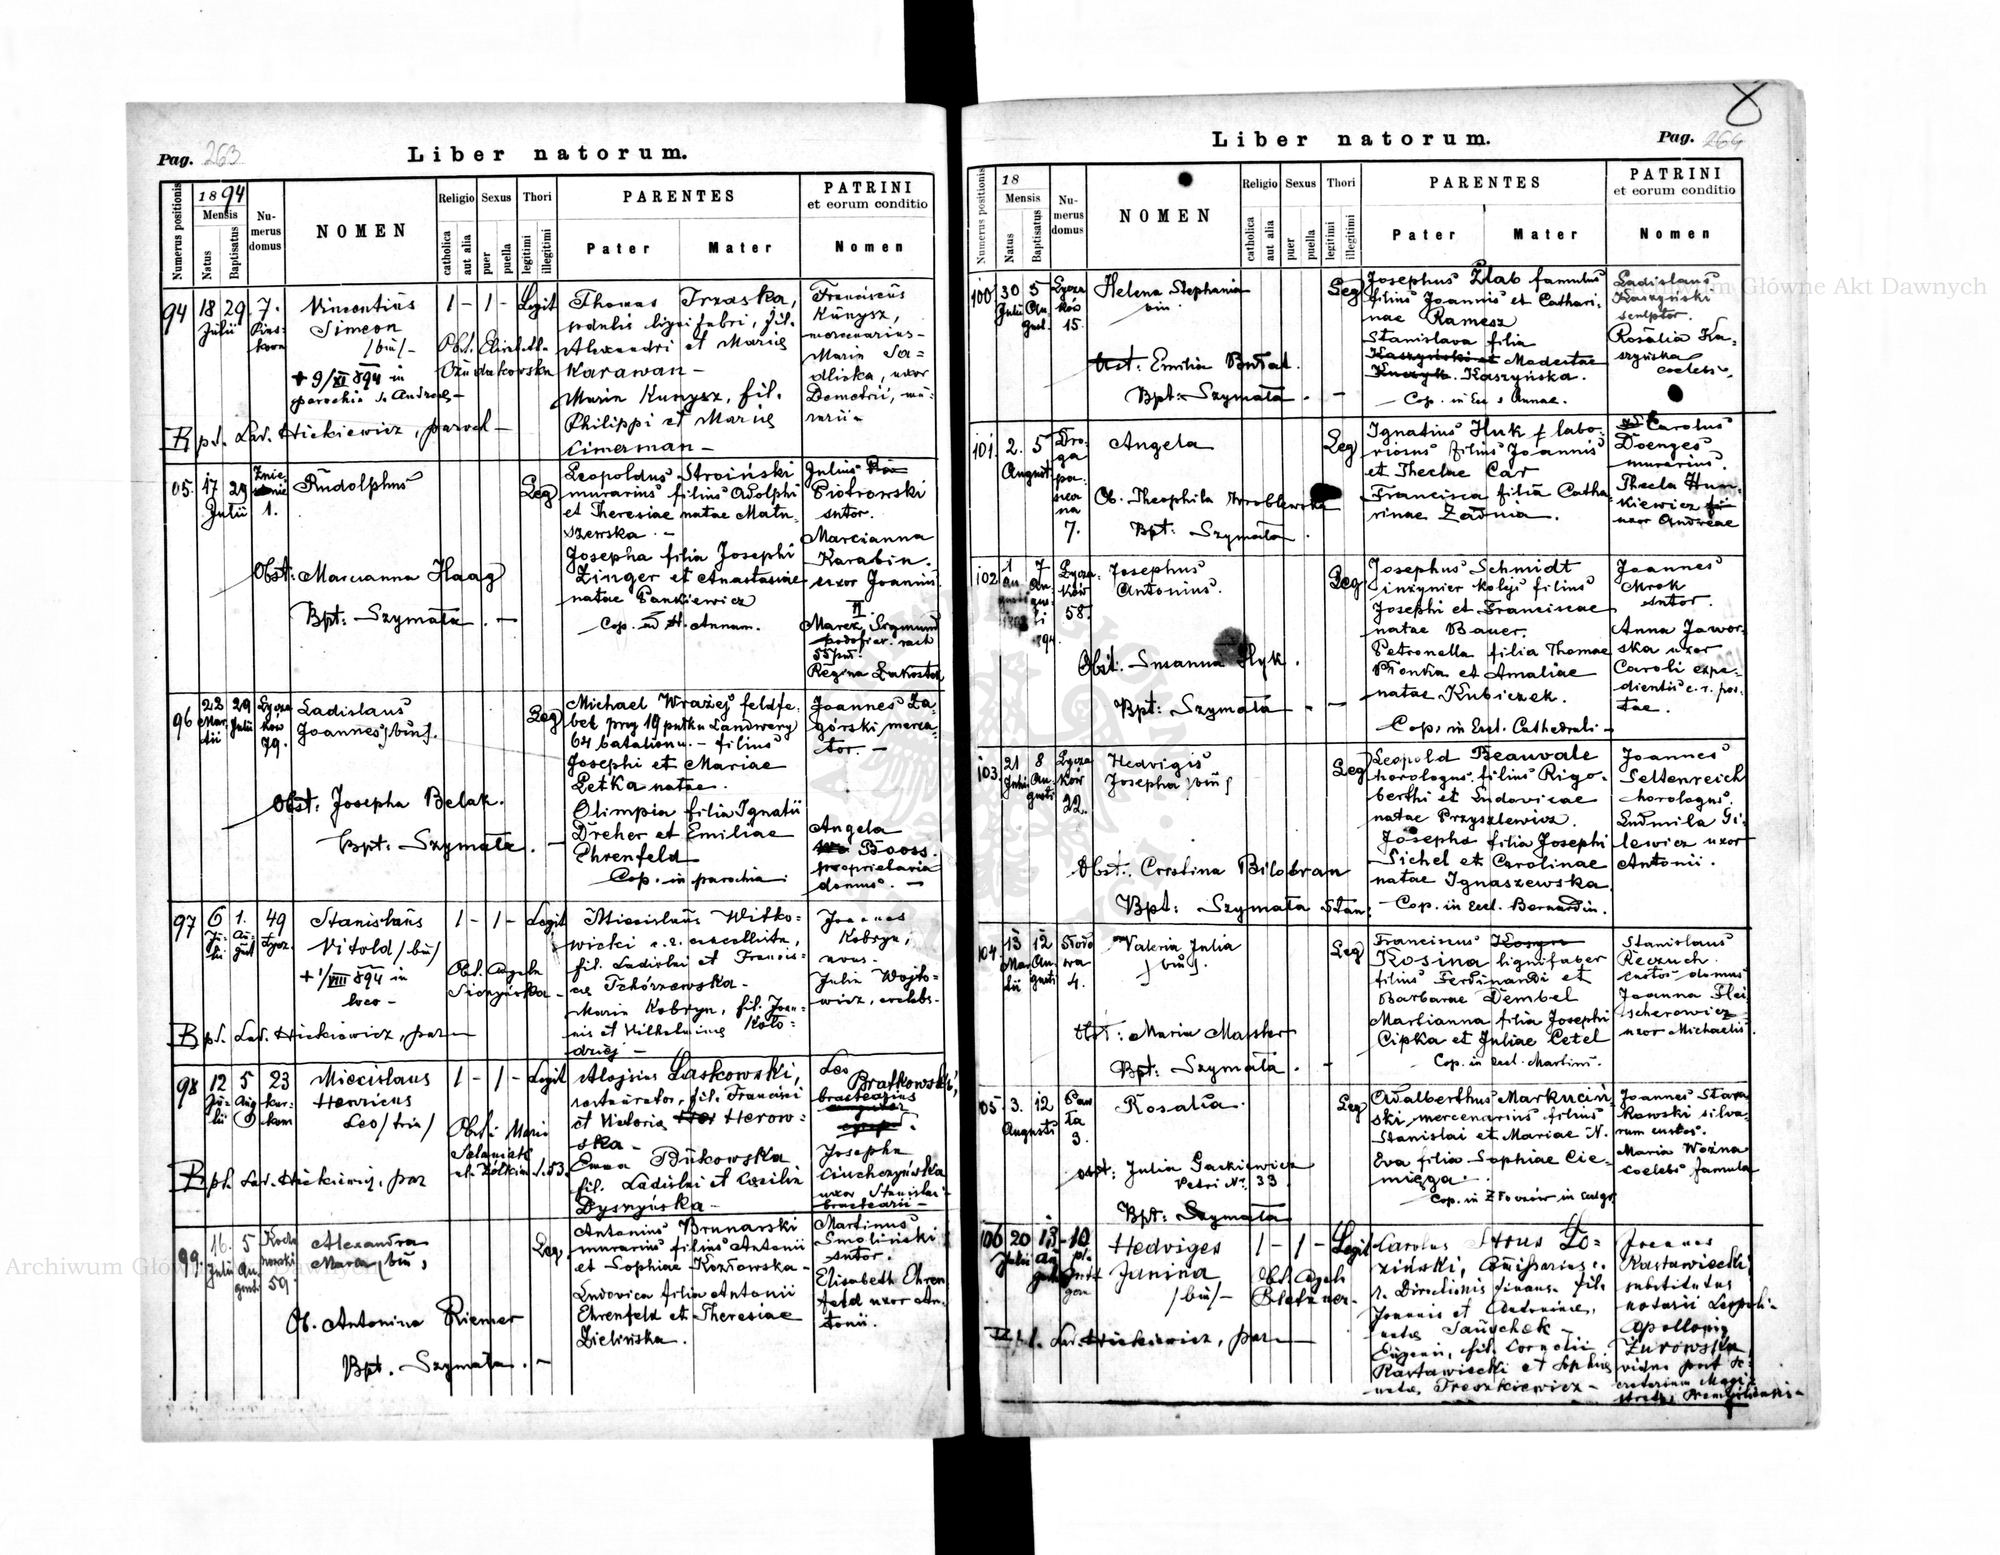 Pag. 263
Liber natorum.
Numerus positionis
1894
Mensis
Natus
Baptisatus
Nu-
merus
domus
NOMEN
Religio
catholica
aut alia
Sexus
puer
puella
Thori
legitimi
illegitimi
PARENTES
Pater
Mater
PATRINI
et eorum conditio
Nomen
94
18 29
Julii
7.
Vincentius
Simeon
/bin/-
+ 9/XI 894 in
parochia S. Andreae-
1 - 1 -
Legit
Obst. Elisabeth
Thomas Trzaska,
sodalis lignifabri, fil.
Alexandri et Mariae
Karawan -
Maria Kunysz, fil.
Philippi et Mariae
Cimerman -
Franciscus
Kunysz,
mercenarius -
Maria
uxor
Demetrii, mu-
rarii -
Bpt. Lad. Hickiewicz, paroch -
95. 17 29
Julii
1.
Rudolphus
Leg
Obst: Marcianna Haag
Bpt: Szymata. -
Leopoldus Stroiński
murarius filius Adolphi
et Theresiae natae Matu-
szewska. -
Josepha filia Josephi
Zinger et Anastasiae
natae Pankiewicz
Cop. ad St. Annam.
Julius
Piotrowski
sutor.
Marcianna
Karabin.
uxor Joannis
II.
Marek Sigmund
podoficer
Regina
96
22 29
Mar- Julii
tii
Lycza
kow
79.
Ladislaus
Joannes /bin/.
Leg
Obst: Josepha Belak.
Bpt: Szymata. -
Michael Wrażej feldfe-
bel przy 19 pułku Landwery
64 batalionu. - filius
Josephi et Mariae
Petka natae.
Olimpia filia Ignatii
Dreher et Emiliae
Ehrenfeld
Cop. in parochia
Joannes Za-
górski, merca-
tor. -
Angela
Booss.
proprietaria
domus. -
97
6 1.
Ju- Au-
lii gust
49
Lycz.
Stanislaus
Vitold /bin/
+ 1/VIII 894 in
loco -
1 - 1 -
Legit
Obst. Angela
Miecislaus Witko-
wicki c. r. cancellista,
fil. Ladislai et Francis-
cae Tchórzewska -
Maria Kobryn, fil. Joan-
nis et Wilhelminae Koło-
dziej -
Joannes
Kobryn,
Julia Wojto-
wicz, coelebs -
Bpt. Lad. Hickiewicz, par
98
12 5
Ju- Aug
lii
23
Miecislaus
Henricus
Leo /trin/
1 - 1 -
Legit
Obst. Maria
Aloysius Laskowski,
restaurator, fil. Francisci
et Victoria Herow-
ska -
Emma Bukowska
fil. Ladislai et Cecilia
Dysryńska -
Leo
Bratkowski,
bractearius
Josepha
Ciuchczyńska
uxor Stanislai
bractearii -
Bpt. Lad. Hickiewicz, par
99.
16. 5
Julii Au-
gusti
59
Alexandra
Maria /bin/
Leg.
Ob. Antonina Riemer
Bpt. Szymata. -
Antonius Brunarski
murarius filius Antonii
et Sophiae Kozłowska -
Ludovica filia Antonii
Ehrenfeld et Theresiae
Zielińska.
Martinus
Smoliński
sutor.
Elisabeth Ehren
feld uxor An-
tonii.
8
Liber natorum.
Pag. 264
Numerus positionis
18
Mensis
Natus
Baptisatus
Nu-
merus
domus
NOMEN
Religio
catholica
aut alia
Sexus
puer
puella
Thori
legitimi
illegitimi
PARENTES
Pater
Mater
PATRINI
et eorum conditio
Nomen
100
30 5
Julii Au-
gust.
Lycza
ków
15.
Helena Stephania
bin.
Leg
Obst: Emilia
Bpt: Szymata. -
Josephus Zlab famulus
filius Joannis et Cathari-
nae Ramesz
Stanislava filia
Kaszyński et Modestae
Kaszyńska.
Cop. in Ecc s Annae.
Ladislaus
Kaszyński
sculptor.
Rosalia Ka-
szyńska
coelebs.
101.
2. 5
August
Dro-
ga
po-
lna
7.
Angela
Leg
Ob. Theophila Wroblewska
Bpt: Szymata.
Ignatius Huk labo-
riosus filius Joannis
et Theclae Car
Francisca filia Catha-
rinae Zadma.
Carolus
Doenges
murarius.
Thecla Hun-
kiewicz
uxor Andreae
102
1 7
Lycza-
ków
58.
Josephus
Antonius.
Leg
Obst. Susanna Hyk.
Bpt: Szymata - -
Josephus Schmidt
inżynier kolej filius
Josephi et Franciscae
natae Bauer.
Petronella filia Thomae
Płonka et Amaliae
natae Kubiczek.
Cop. in Eccl. Cathedrali -
Joannes
Mrok
sutor.
Anna Jawor-
ska uxor
Caroli expe-
dientis c. r. pos-
tae.
103.
21 8
Julii Au-
gusti
Lycza
ków
22.
Hedvigis
Josepha /bin/
Leg
Obst. Cristina Bilobran
Bpt: Szymata Stan.
Leopold Beauvale
horologus. filius Rigo-
berthi et Ludovicae
natae Przyszlewicz.
Josepha filia Josephi
Sichel et Carolinae
natae Ignaszewska.
Cop. in Eccl. Bernardin.
Joannes
Seltenreich
horologus.
Ludmila Gi-
lewicz uxor
Antonii.
104.
13 12
Mar- Au-
tii gusti
4.
Valeria Julia
/bin/.
Leg
Obst: Maria Masster
Bpt: Szymata. -
Franciscus
Kosina lignifaber
filius Ferdinandi et
Barbarae Dembel
Marcianna filia Josephi
Cipka et Juliae Cetel
Cop. in Eccl. Martini.
Stanislaus
Reczuch.
custos domus
Joanna Flei-
scherowicz
uxor Michaelis
105
3. 12
Augusti
3.
Rosalia.
Leg
obst: Julia Gackiewicz
Petri Nr. 33
Bpt: Szymata
Adalberthus Markuciń-
ski, mercenarius filius
Stanislai et Mariae N.
Eva filia Sophiae Cie-
mięga.
Joannes Stara
kowski silva-
rum custos.
Maria Woźna
coelebs famula
106
20 13
Julii Au
gusti
10
Hedviges
Janina,
/bin/ -
1 - 1 -
Legit
Obst. Angela
Carolus Strus Ło-
ziński,
r. Directionis financ. fil.
Joannis et Antoninae,
natae
Eugenia, fil. Cornelii
Rastawiecki et Sophiae
natae Treszkiewicz -
Joannes
Rastawiecki,
substitutus
notarii Leopoli -
Apollonia
Żurowska
vidua post se-
cretarium Magi-
Bpt. Lad. Hickiewicz, par
Archiwum Główne Akt Dawnych
Archiwum Główne Akt Dawnych